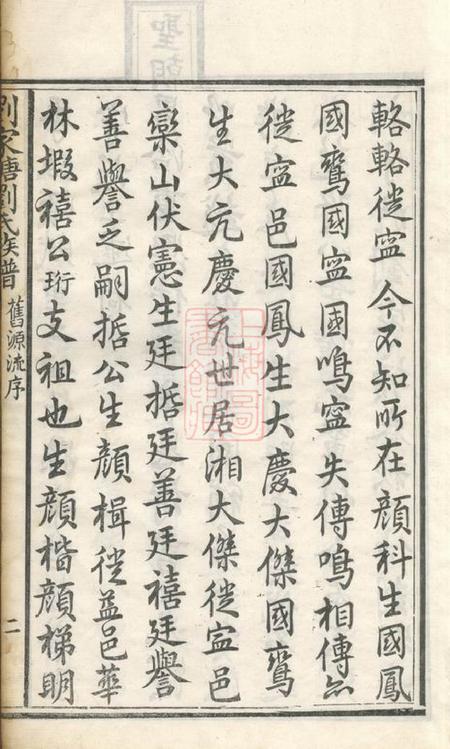 輅輅徙寍今不知所在顔科生國鳳
國鸞國寍國鳴寍失傳鳴相傳亦
徙寍邑國鳳生大慶大傑國鸞
生大亢慶亢世居湘大傑徙寍邑
欒山伏憲生廷掋廷善廷禧廷譽
善譽乏嗣掋公生顔楫徙益邑華
林塅禧公珩支祖也生顔楷顔梯明
劉家塘劉氏族譜 舊源流序 二